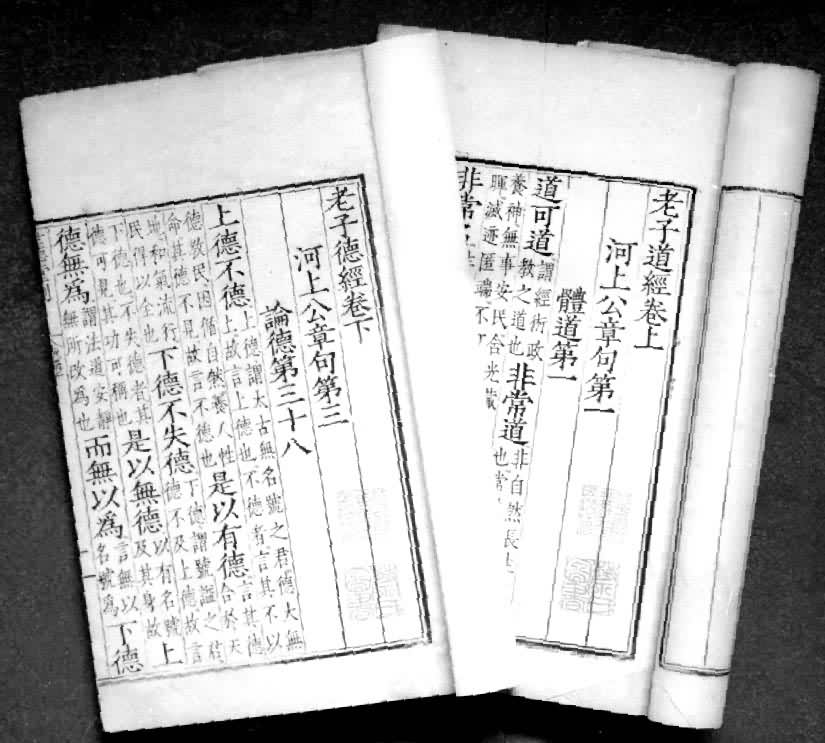 老子道經卷上
河上公章句第一
體道第一
道可道謂經術政教之道也非常道非自然長生也常
養神無事安民含光藏暉滅迹匿端不
非常
老子德經卷下
河上公章句第三
論德第三十八
上德不德上德謂太古無名號之君德大無上故言上德也不德者言其不以
德教民因循自然養人性命其德不見故言不德也是以有德言其德合於天
地和氣流行民得以全也下德不失德下德謂號謚之君德不及上德故言
下德也不失德者其德可見其功可稱也是以無德以有名號及其身故上
德無為謂法道安靜無所改為也而無以為言無以名號為下德